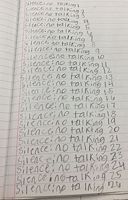 Silence: no talking
Silence: no talking
Silence: no talking
Silence: no talking
Silence: no talking
Silence: no talking
Silence: no talking
Silence: no talking 9
Silence: no talking 10
Silence: no talking 11
Silence: no talking 12
Silence: no talking 13
Silence: no talking 14
Silence: no talking 15
Silence: no talking 16
Silence: no talking 17
Silence: no talking 18
Silence: no talking 19
Silence: no talking 20
Silence: no talking 21
Silence: no talking 22
Silence: no talking 23
Silence: no talking 24
Silence: no talking 25
Silence: no talking 26